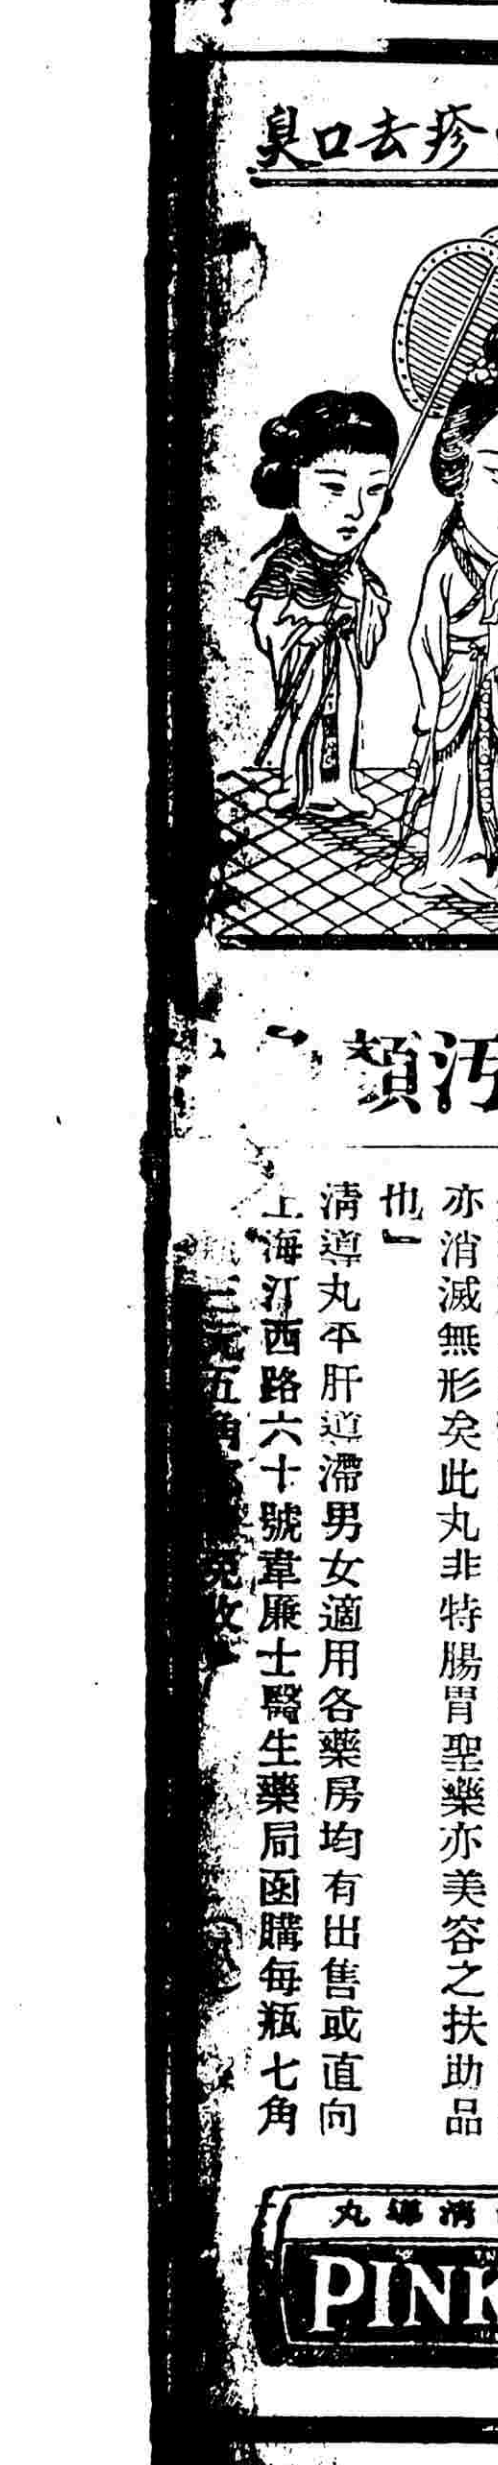 疹去口臭
汚類
亦消滅無形矣此丸非特腸胃聖藥亦美容之扶助品
也』
清導丸平肝道滯男女適用各藥房均有出售或直向
上海江西路六十號韋廉士醫生藥局函購每瓶七角
三元五角
清導丸
PINK